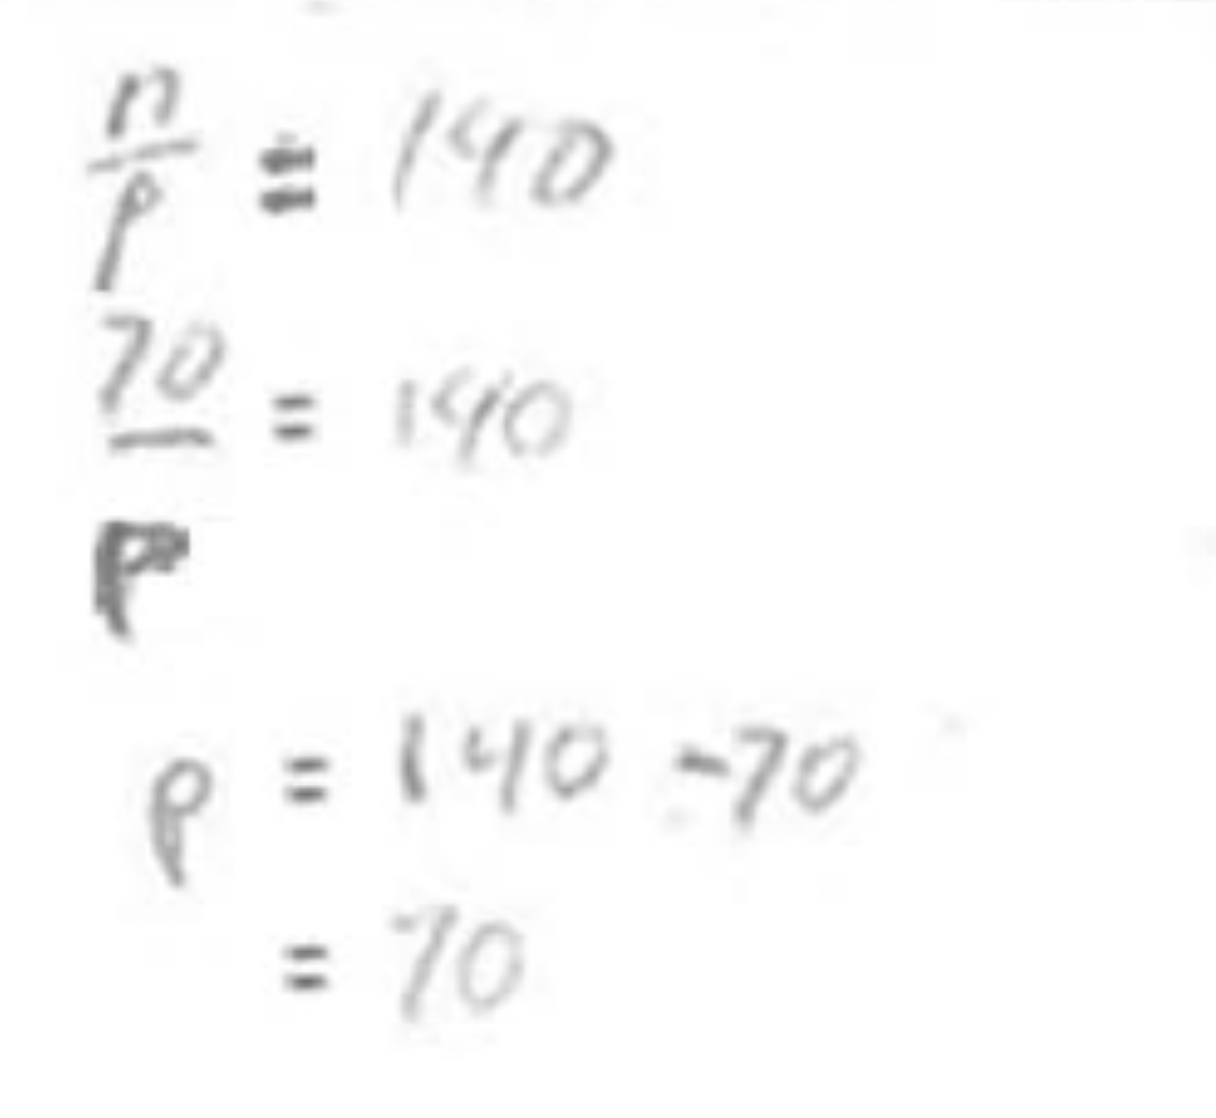 n/p = 140
70/p = 140
p = 140 - 70
= 70